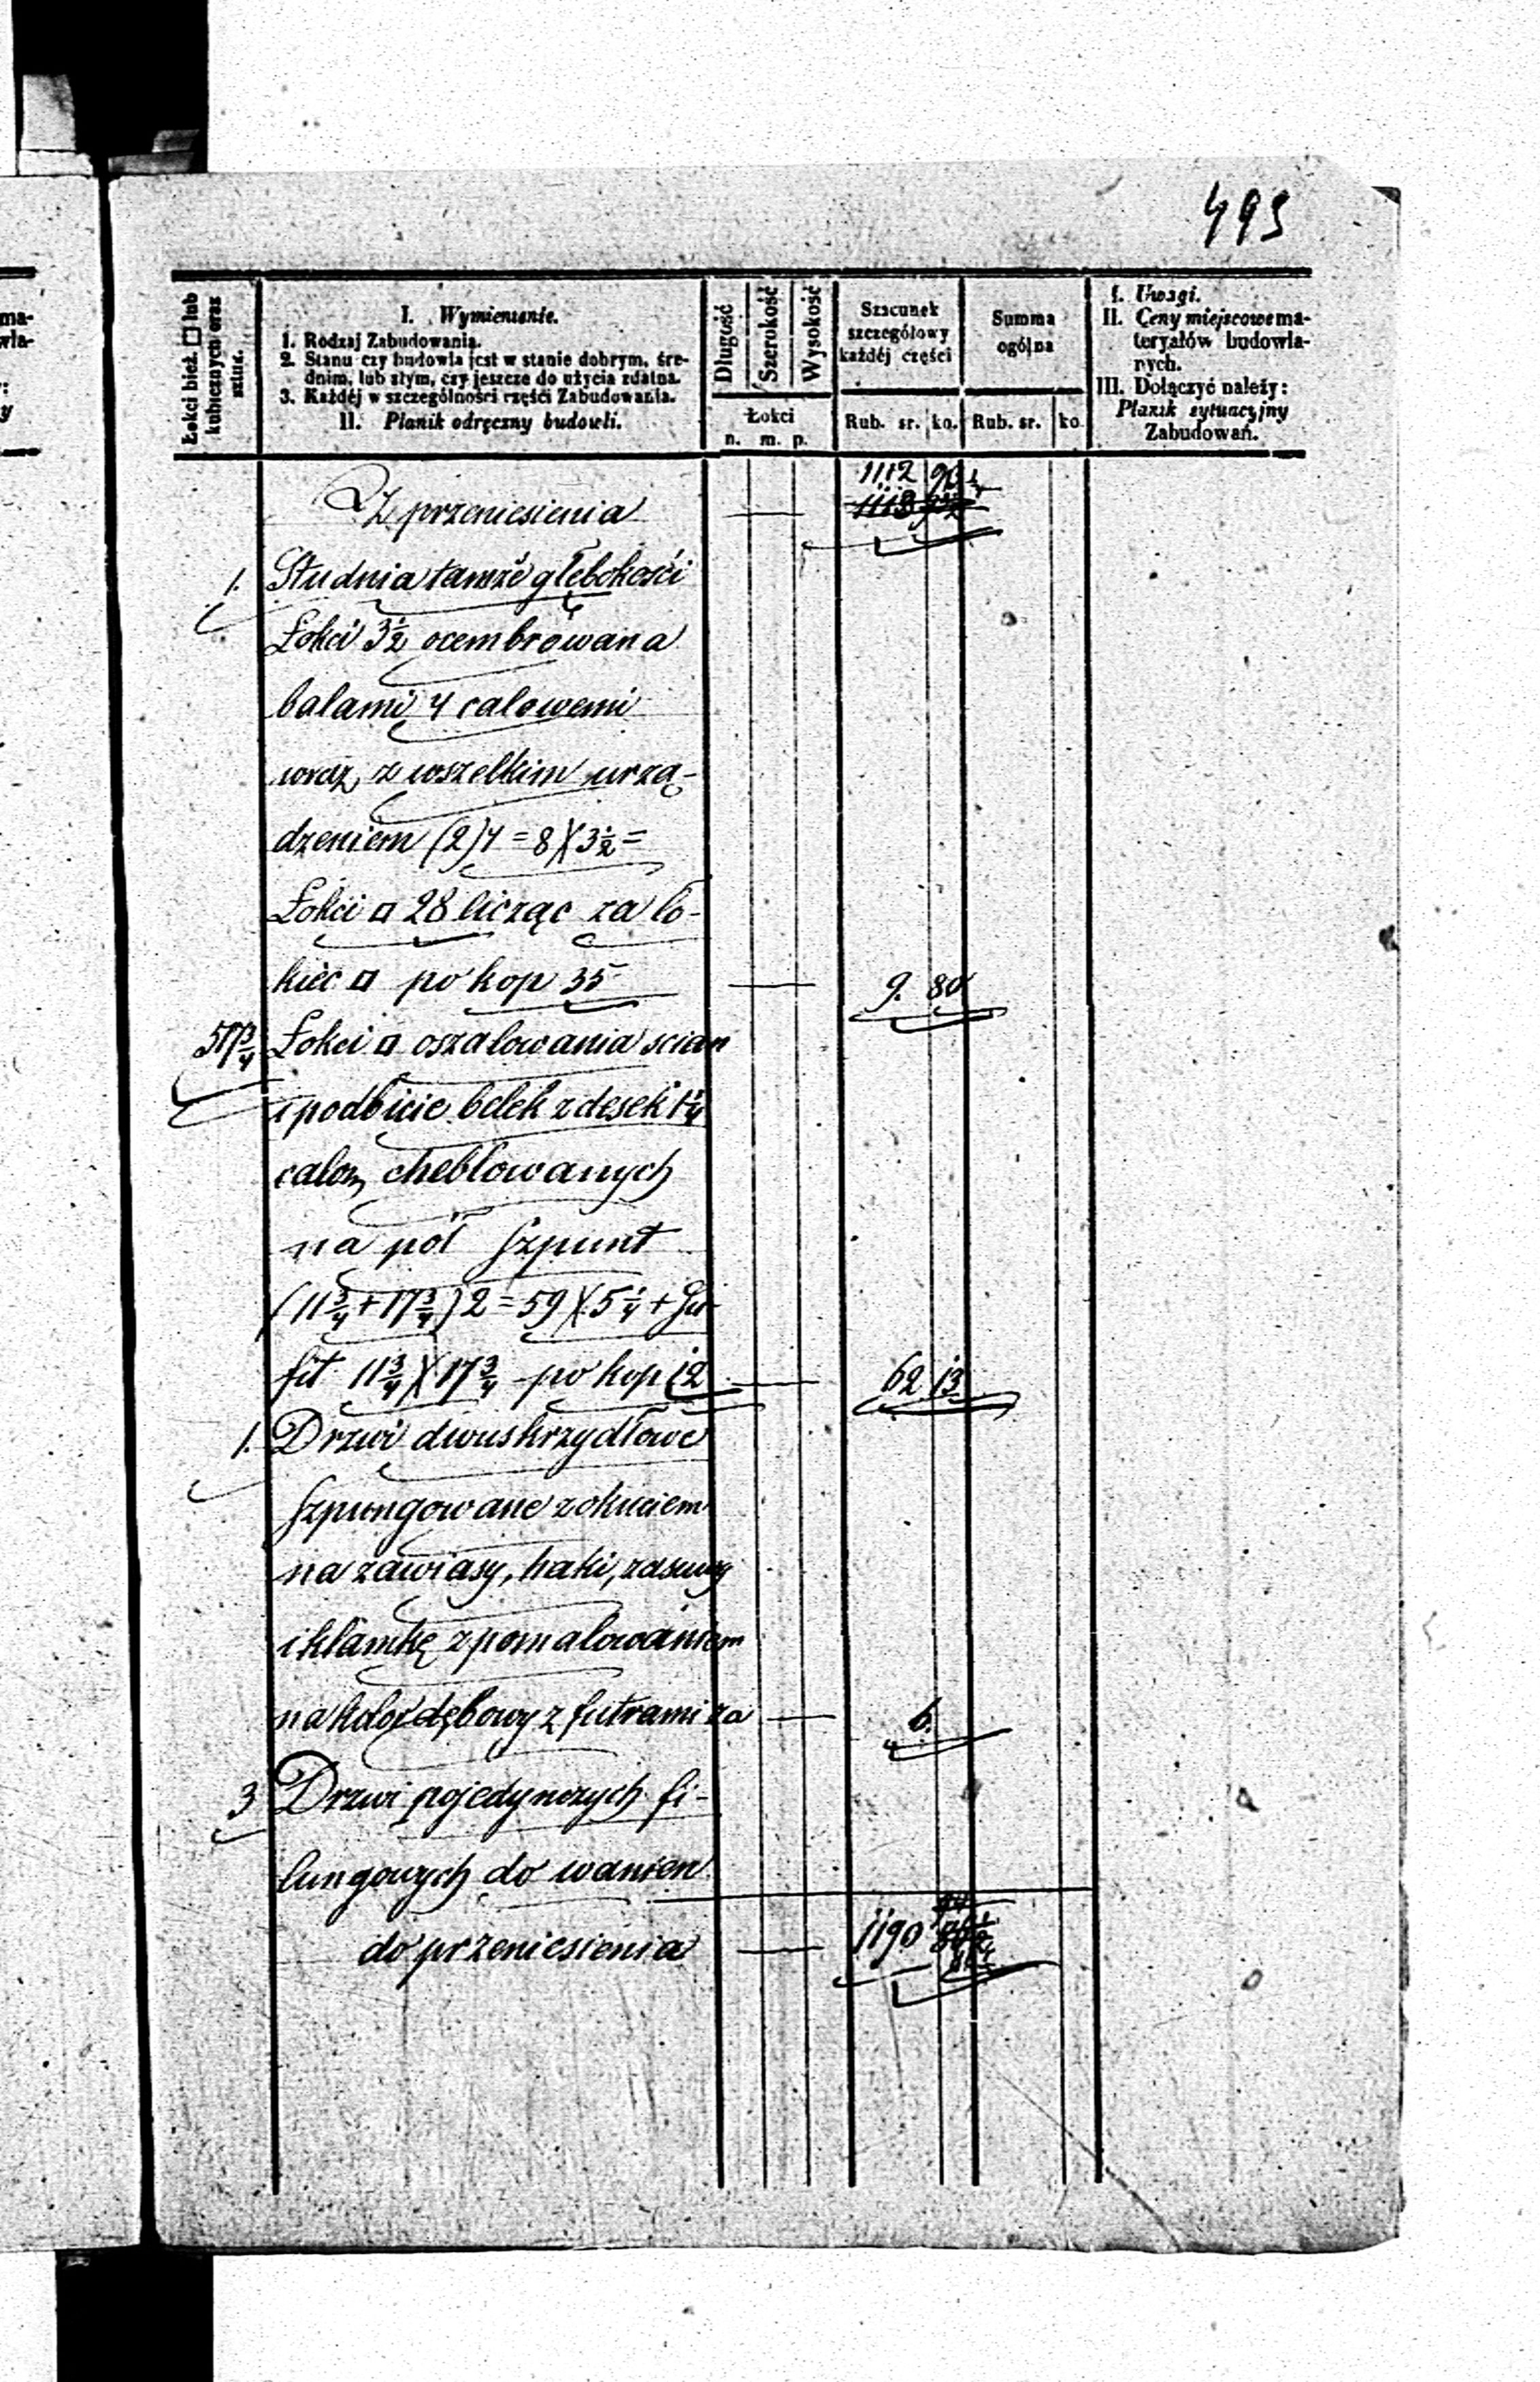 493
Łokci bież. □ lub kubicznych oraz sztuk.
I. Wymienienie.
1. Rodzaj Zabudowania.
2. Stanu czy budowla jest w stanie dobrym, śre-
dnim, lub złym, czy jeszcze do użycia zdatna.
3. Każdéj w szczególności części Zabudowania.
II. Planik odręczny budowli.
Długość
Szerokość
Wysokość
Łokci
n. m. p.
Szacunek
szczegółowy
każdéj części
Rub. sr. ko.
Summa
ogólna
Rub. sr. ko
I. Uwagi.
II. Ceny miejscowe ma-
teryałów budowla-
nych.
III. Dołączyć należy:
Planik sytuacyjny
Zabudowań.
1112
Z przeniesienia — 1113
1. Studnia tamże głębokości
Łokci 3½ ocembrowana
balami 4 calowemi
wraz z wszelkim urzą-
dzeniem (2)4=8)(3½=
Łokci □ 28 licząc za ło-
kieć □ po kop 35 — 9. 80
517¾ Łokci □ oszalowania scian
i podbicie belek z desek 1¼
calow, cheblowanych
na pół szpunt
(11¾+17¾)2=59)(5¼+Su-
fit 11¾)(17¾ po kop 12 — 62 13
1. Drzwi dwuskrzydłowe
szpungowane z okuciem
na zawiasy, haki, zasuwy
i klamkę z pomalowaniem
na kolor dębowy z futrami za — 6.
3 Drzwi pojedynczych fi-
lungowych do wanien
do przeniesienia — 1190